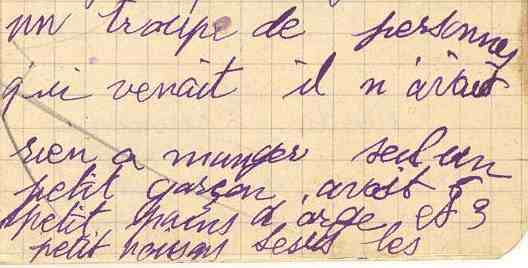 un troupe de personnes
qui venait il n'avait
rien a manger seul un
petit garçon avait 5
petit pains d'orge et 3
petit Jesus les